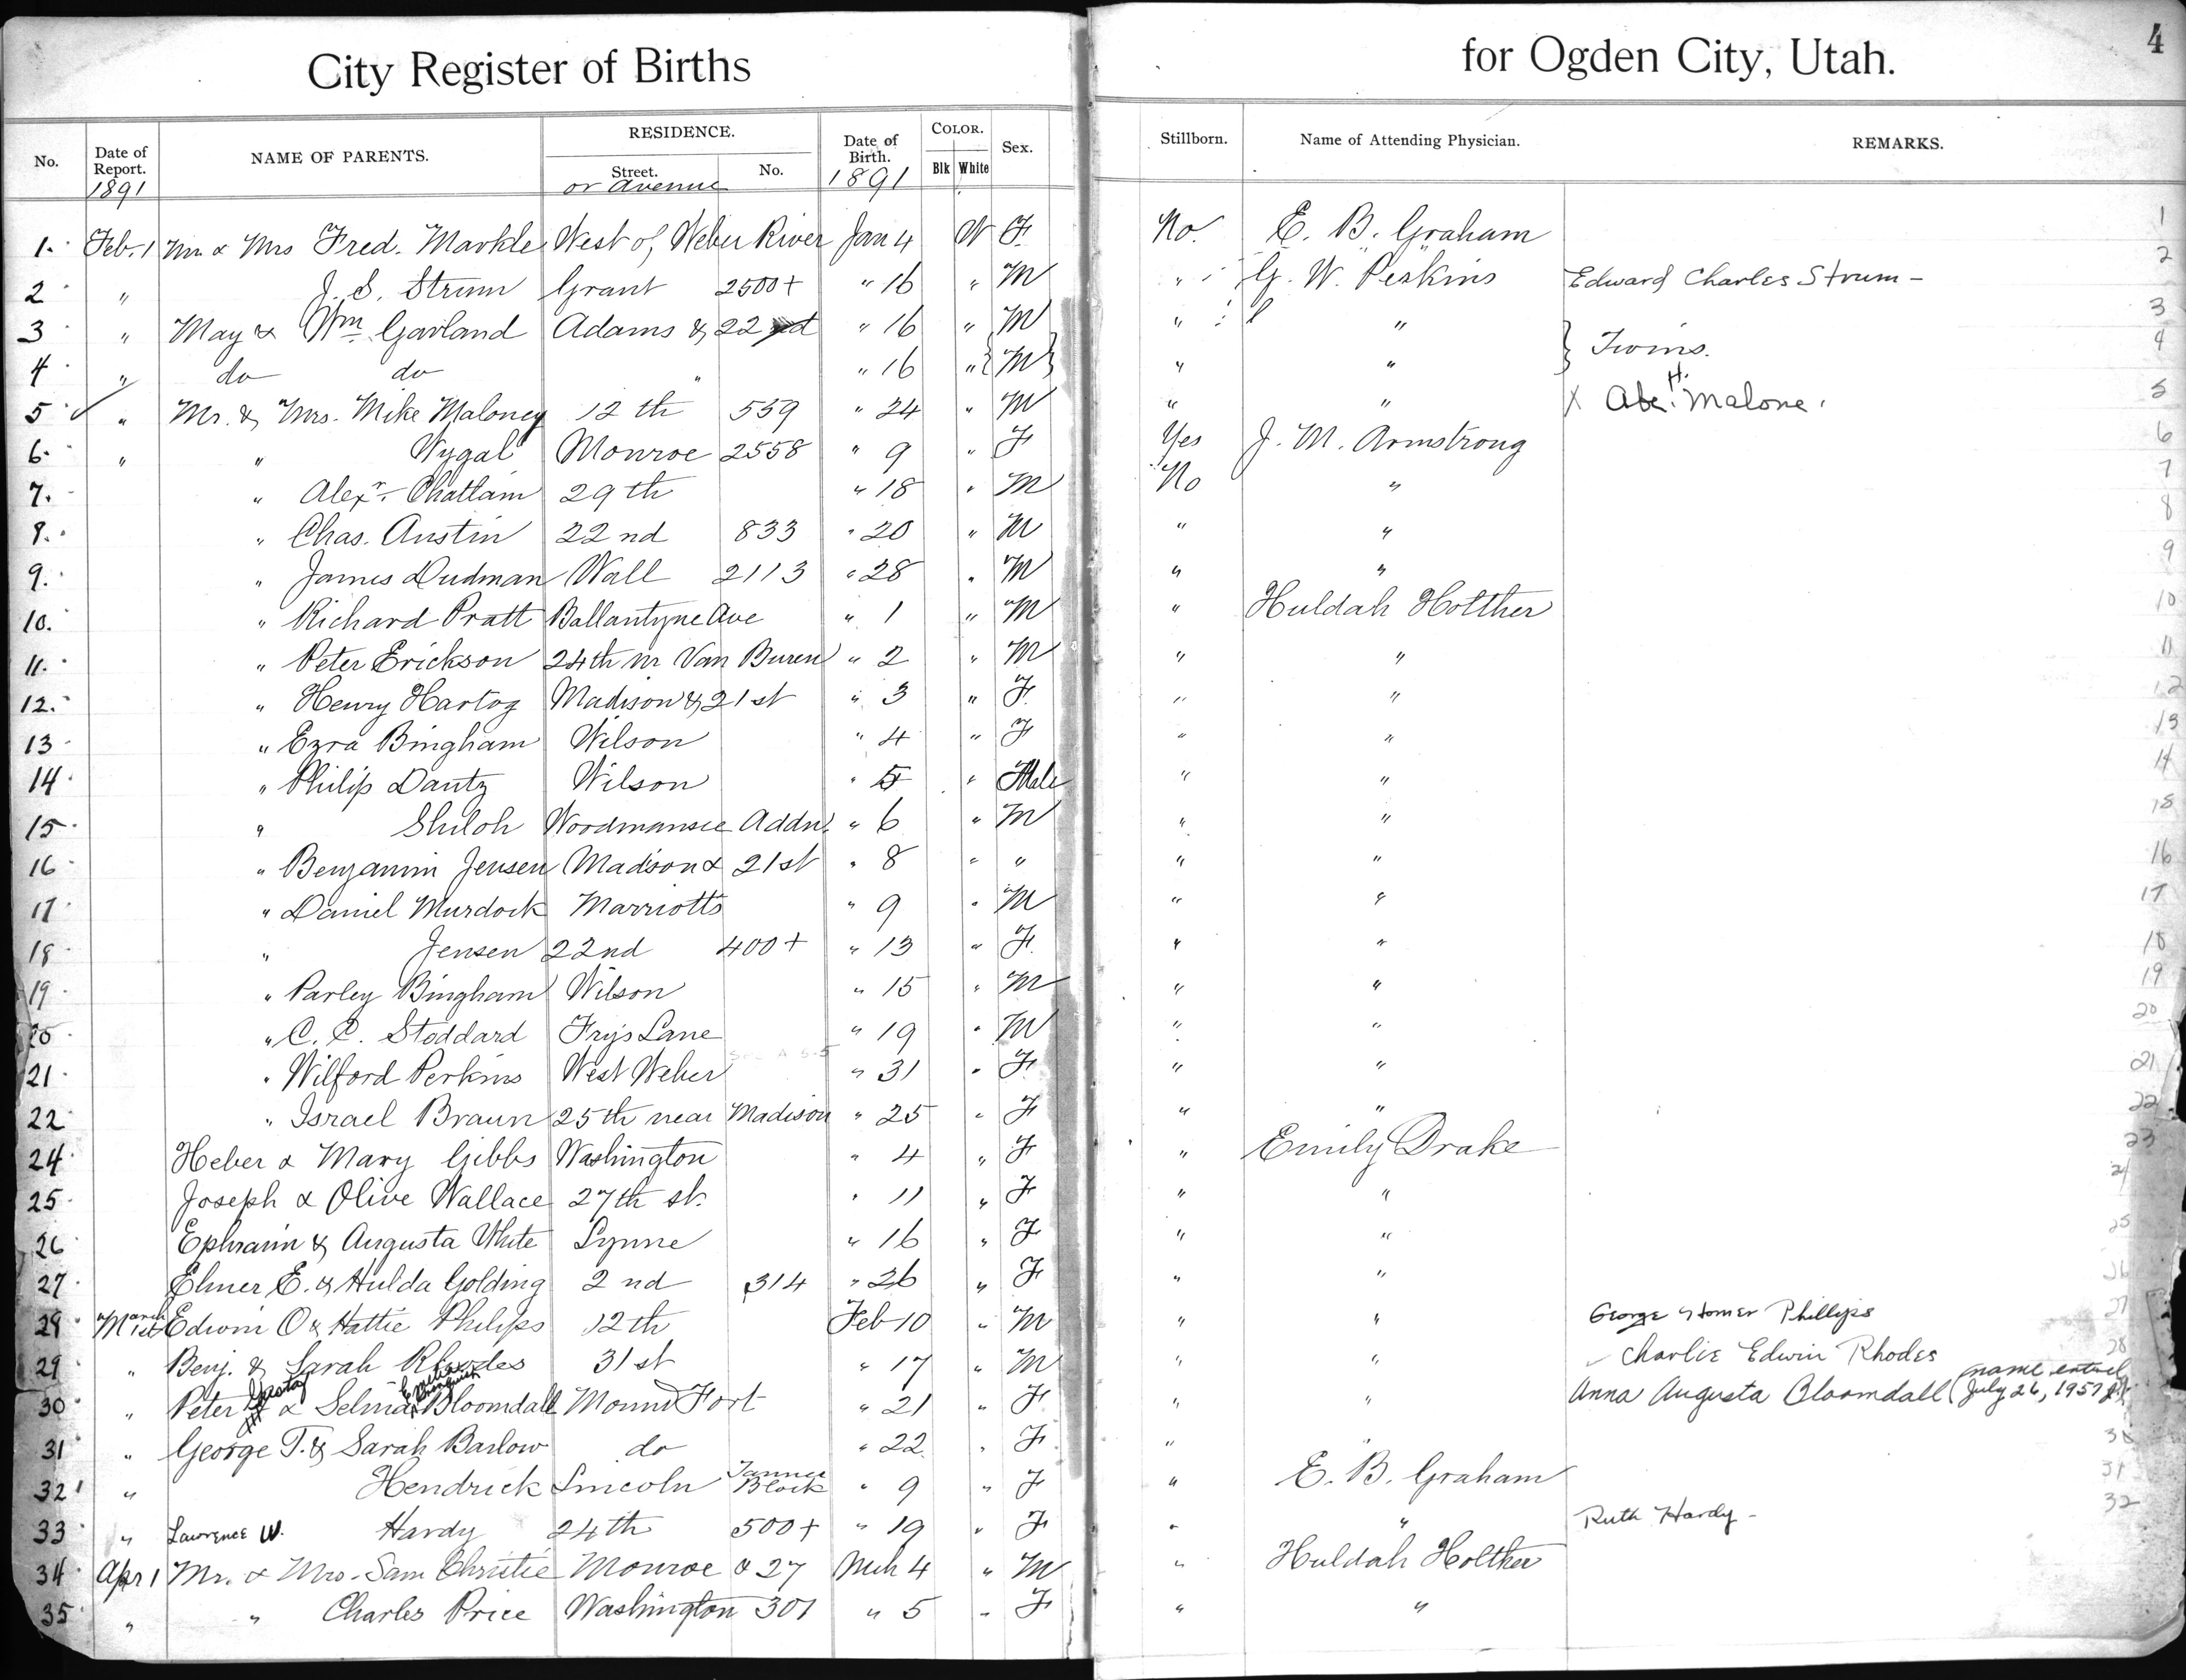 City Register of Births for Ogden City, Utah. 4
No. Date of Report. NAME OF PARENTS. RESIDENCE. Street. No. Date of Birth. COLOR. Blk White Sex. Stillborn. Name of Attending Physician. REMARKS.
1891 or Avenue 1891
1. Feb. 1 Mr & Mrs Fred. Markle West of Weber River Jan 4 W F. No. E. B. Graham 1
2 " J. S. Strum Grant 2500+ " 16 " M " G. W. Perkins Edward Charles Strum - 2
3 " May & Wm Garland Adams & 22nd " 16 " M " " } Twins. 3
4 " do do " " 16 " M " " 4
5 " Mr. & Mrs. Mike Maloney 12th 559 " 24 " M " " X Abe. H. Malone. 5
6. " " Nygal Monroe 2558 " 9 " F Yes J. M. Armstrong 6
7. " Alexr. Chattam 29th " 18 " M No " 7
8. " Chas. Austin 22nd 833 " 20 " M " " 8
9. " James Dudman Wall 2113 " 28 " M " " 9
10. " Richard Pratt Ballantyne Ave " 1 " M " Huldah Holther 10
11. " Peter Erickson 24th nr Van Buren " 2 " M " " 11
12. " Henry Hartog Madison & 21st " 3 " F. " " 12
13 " Ezra Bingham Wilson " 4 " F " " 13
14 " Philip Dantz Wilson " 5 " Male " " 14
15 " Shiloh Woodmansee Addn. " 6 " M " " 15
16 " Benjamin Jensen Madison & 21st " 8 " " " " 16
17 " Daniel Murdock Marriotts " 9 " M " " 17
18 " Jensen 22nd 400+ " 13 " F. " " 18
19 " Parley Bingham Wilson " 15 " M " " 19
20 " C. C. Stoddard Frys Lane " 19 " M " " 20
21 " Wilford Perkins West Weber " 31 " F " " 21
22 " Israel Braun 25th near Madison " 25 " F " " 22
24 Heber & Mary Gibbs Washington " 4 " F " Emily Drake 23
25 Joseph & Olive Wallace 27th st. " 11 " F " " 24
26 Ephraim & Augusta White Lynne " 16 " F " " 25
27 Elmer E. & Hulda Golding 2nd 314 " 26 " F " " 26
29 March 1st Edwin O & Hattie Philips 12th Feb 10 " M " " George Homer Phillips 27
29 " Benj. & Sarah Rhodes 31st " 17 " M " " Charlie Edwin Rhodes 28
30 " Peter Gustaf & Selma Bloomdall Mound Fort " 21 " F " " Anna Augusta Bloomdall (name entered July 26, 1957
31 " George T. & Sarah Barlow do " 22 " F. " " 30
32 " Hendrick Lincoln Tanner Block " 9 " F " E. B. Graham 31
33 " Lawrence W. Hardy 24th 500+ " 19 " F " " Ruth Hardy - 32
34 Apr 1 Mr. & Mrs. Sam Christie Monroe & 27 Mch 4 " M " Huldah Holther
35 " " Charles Price Washington 301 " 5 " F " "